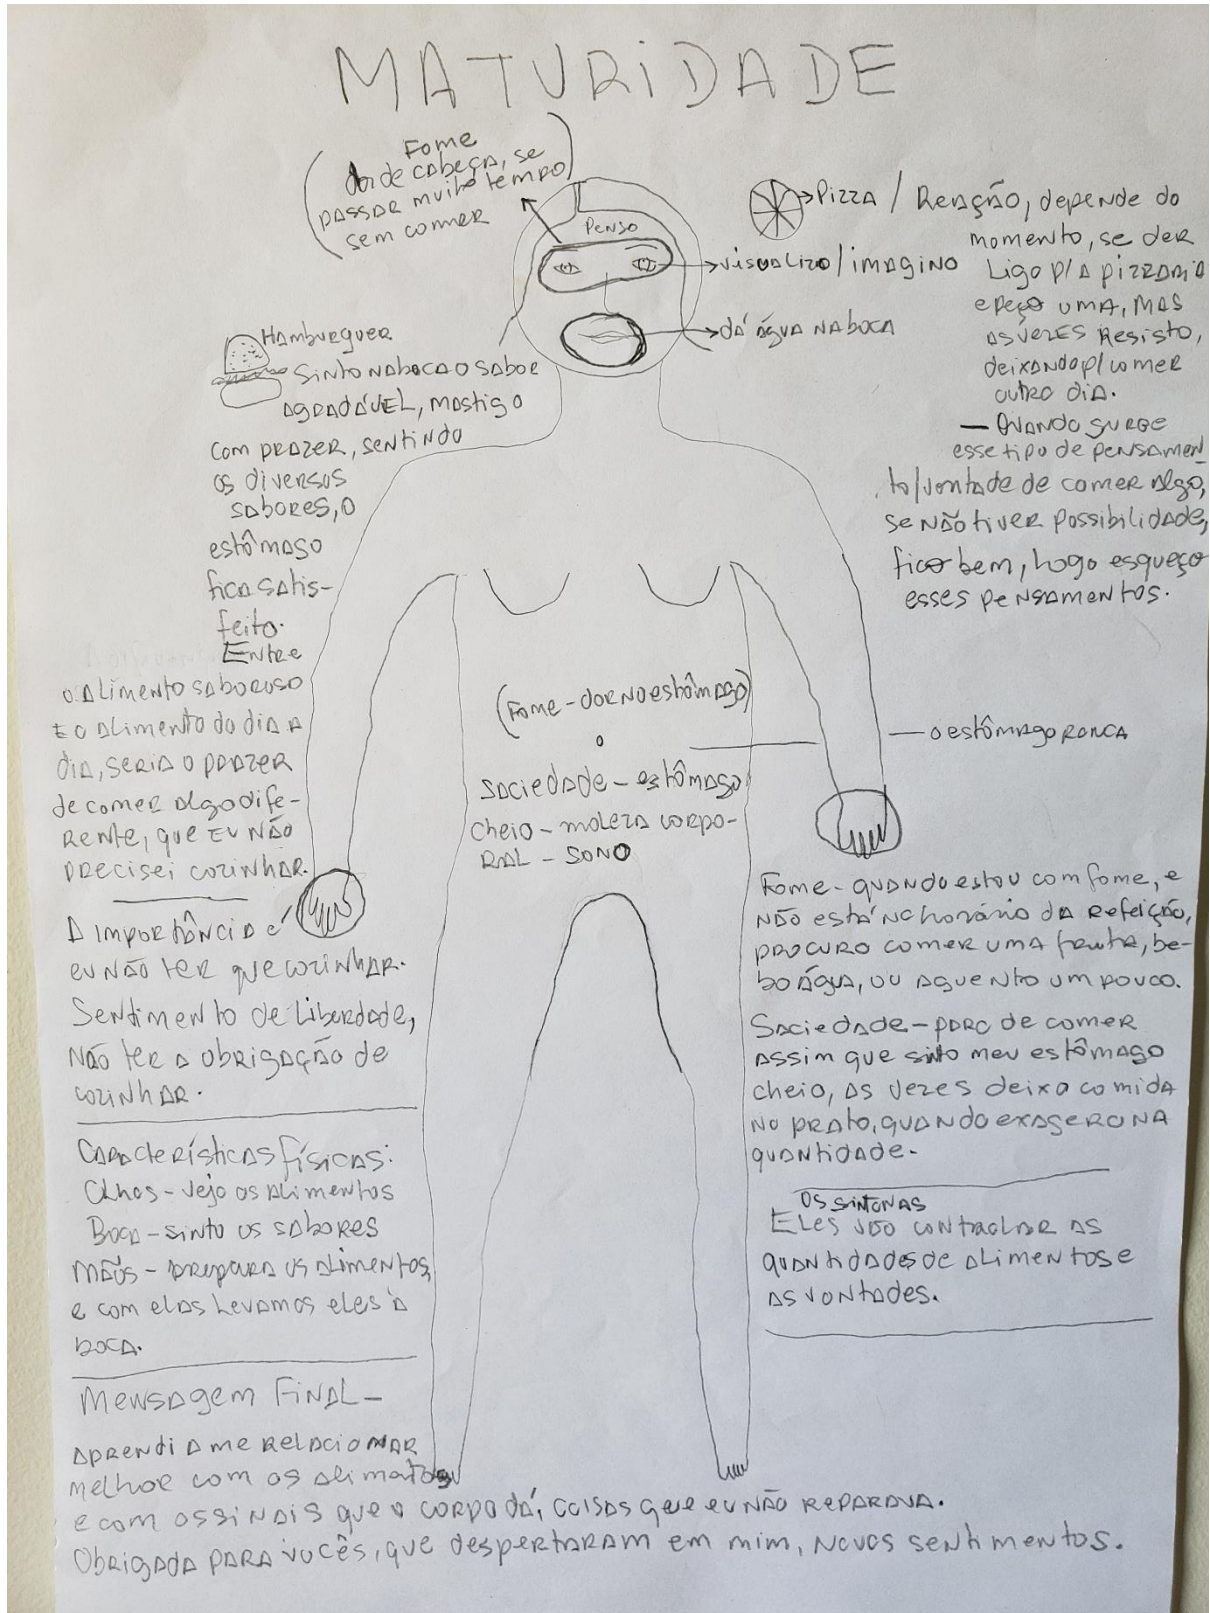 MATURIDADE
(Fome
dor de cabeça, se
passar muito tempo)
sem comer
Penso
visualizo/imagino
dá água na boca
Pizza / Reação, depende do
momento, se der
Ligo p/ a pizzaria
e peço uma, mas
as vezes resisto,
deixando p/ comer
outro dia.
— Quando surge
esse tipo de pensamen
to/vontade de comer algo,
se não tiver possibilidade,
fico bem, logo esqueço
esses pensamentos.
Hamburguer
Sinto na boca o sabor
agradável, mastigo
com prazer, sentindo
os diversos
sabores, o
estômago
fica satis-
feito.
Entre
o alimento saboroso
e o alimento do dia a
dia, seria o prazer
de comer algo dife-
rente, que eu não
precisei cozinhar.
A importância é
eu não ter que cozinhar.
Sentimento de liberdade,
não ter a obrigação de
cozinhar.
(Fome - dor no estômago)
o
Saciedade - estômago
cheio - moleza corpo-
ral - sono
— o estômago ronca
Fome - quando estou com fome, e
não está no horário da refeição,
procuro comer uma fruta, be-
bo água, ou aguento um pouco.
Saciedade - paro de comer
assim que sinto meu estômago
cheio, as vezes deixo comida
no prato, quando exagero na
quantidade.
Os sintonas
Eles vão controlar as
quantidades de alimentos e
as vontades.
Características físicas:
Olhos - vejo os alimentos
Boca - sinto os sabores
Mãos - prepara os alimentos,
e com elas levamos eles à
boca.
Mensagem Final -
Aprendi a me relacionar
melhor com os alimatos
e com os sinais que o corpo dá, coisas que eu não reparava.
Obrigada para vocês, que despertaram em mim, novos sentimentos.